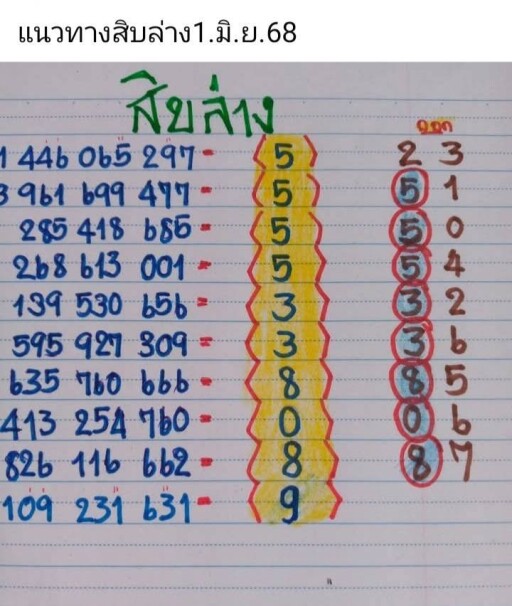 แนวทางสิบล่าง1.มิ.ย.68
สิบล่าง
ออก
1 446 065 297 = 5 2 3
3 961 699 477 = 5 5 1
285 418 686 = 5 5 0
268 613 001 = 5 5 4
139 530 656 = 3 3 2
595 927 309 = 3 3 6
635 760 666 = 8 8 5
413 254 760 = 0 0 6
826 116 662 = 8 8 7
109 231 631 = 9